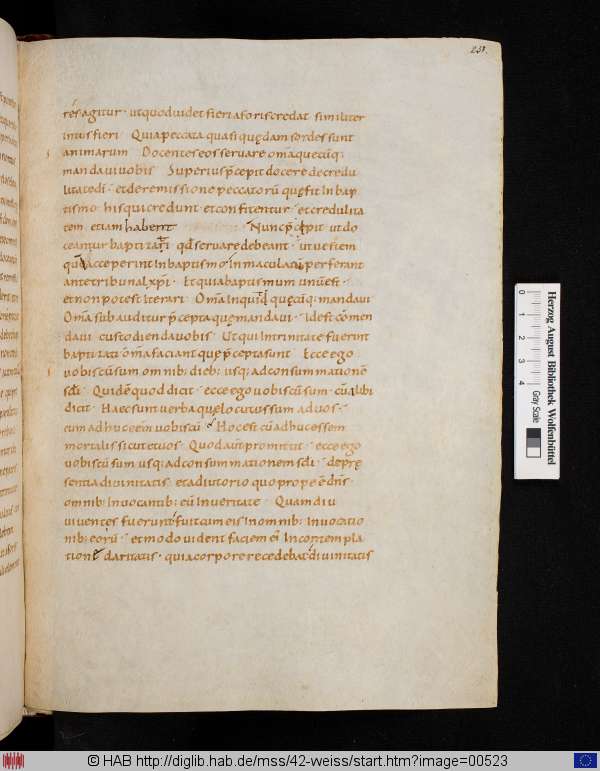 251.
rés agitur · ut quod uidet fieri a foris credat similiter
intus fieri Quia peccata quasi quędam sordes sunt
animarum Docentes eos seruare om̅a quecūq;
mandaui uobis Superius p̄cepit docere de credu
litate di · et de remissione peccatorū quę fit in bap
tismo his qui credunt et confitentur · et credulita
tem etiam haberit Nunc p̄cepit ut do
ceantur baptizati qd̄ seruare debeant · ut uestem
quā acceperint In baptismo Inmaculatā perferant
ante tribunal xp̄i · Et quia baptismum unū est ·
et non potest iterari Om̅a Inquid quęcūq; mandaui
Om̅a subauditur p̄cepta quę mandaui · Id est cōmen
daui custodienda uobis Ut qui In trinitate fuerint
baptizati om̅a faciant quę p̄cepta sunt Ecce ego
uobiscū sum omnib; dieb; usq; ad consummationē
scl̄i · Quidē quod dicit · ecce ego uobiscū sum · cū alibi
dicit Haec sunt uerba quę locutus sum ad uos ·
cum adhuc eēm uobiscū Hoc est cū adhuc essem
mortalis sicut et uos Quod aut̄ promittit · ecce ego
uobiscū sum usq; ad consummationem scl̄i · de prę
sentia diuinitatis · et adiutorio quo prope ē dn̄s ·
omnib; Inuocantib; eū In ueritate · Quamdiu
uiuentes fuerunt fuit cum eis In omnib; Inuocatio
nib; eorū · et modo uident faciem ei In contempla
tione claritatis · quia corpore recedebat diuinitatis
0 1 2 3 4
Gray Scale
Herzog August Bibliothek Wolfenbüttel
© HAB http://diglib.hab.de/mss/42-weiss/start.htm?image=00523